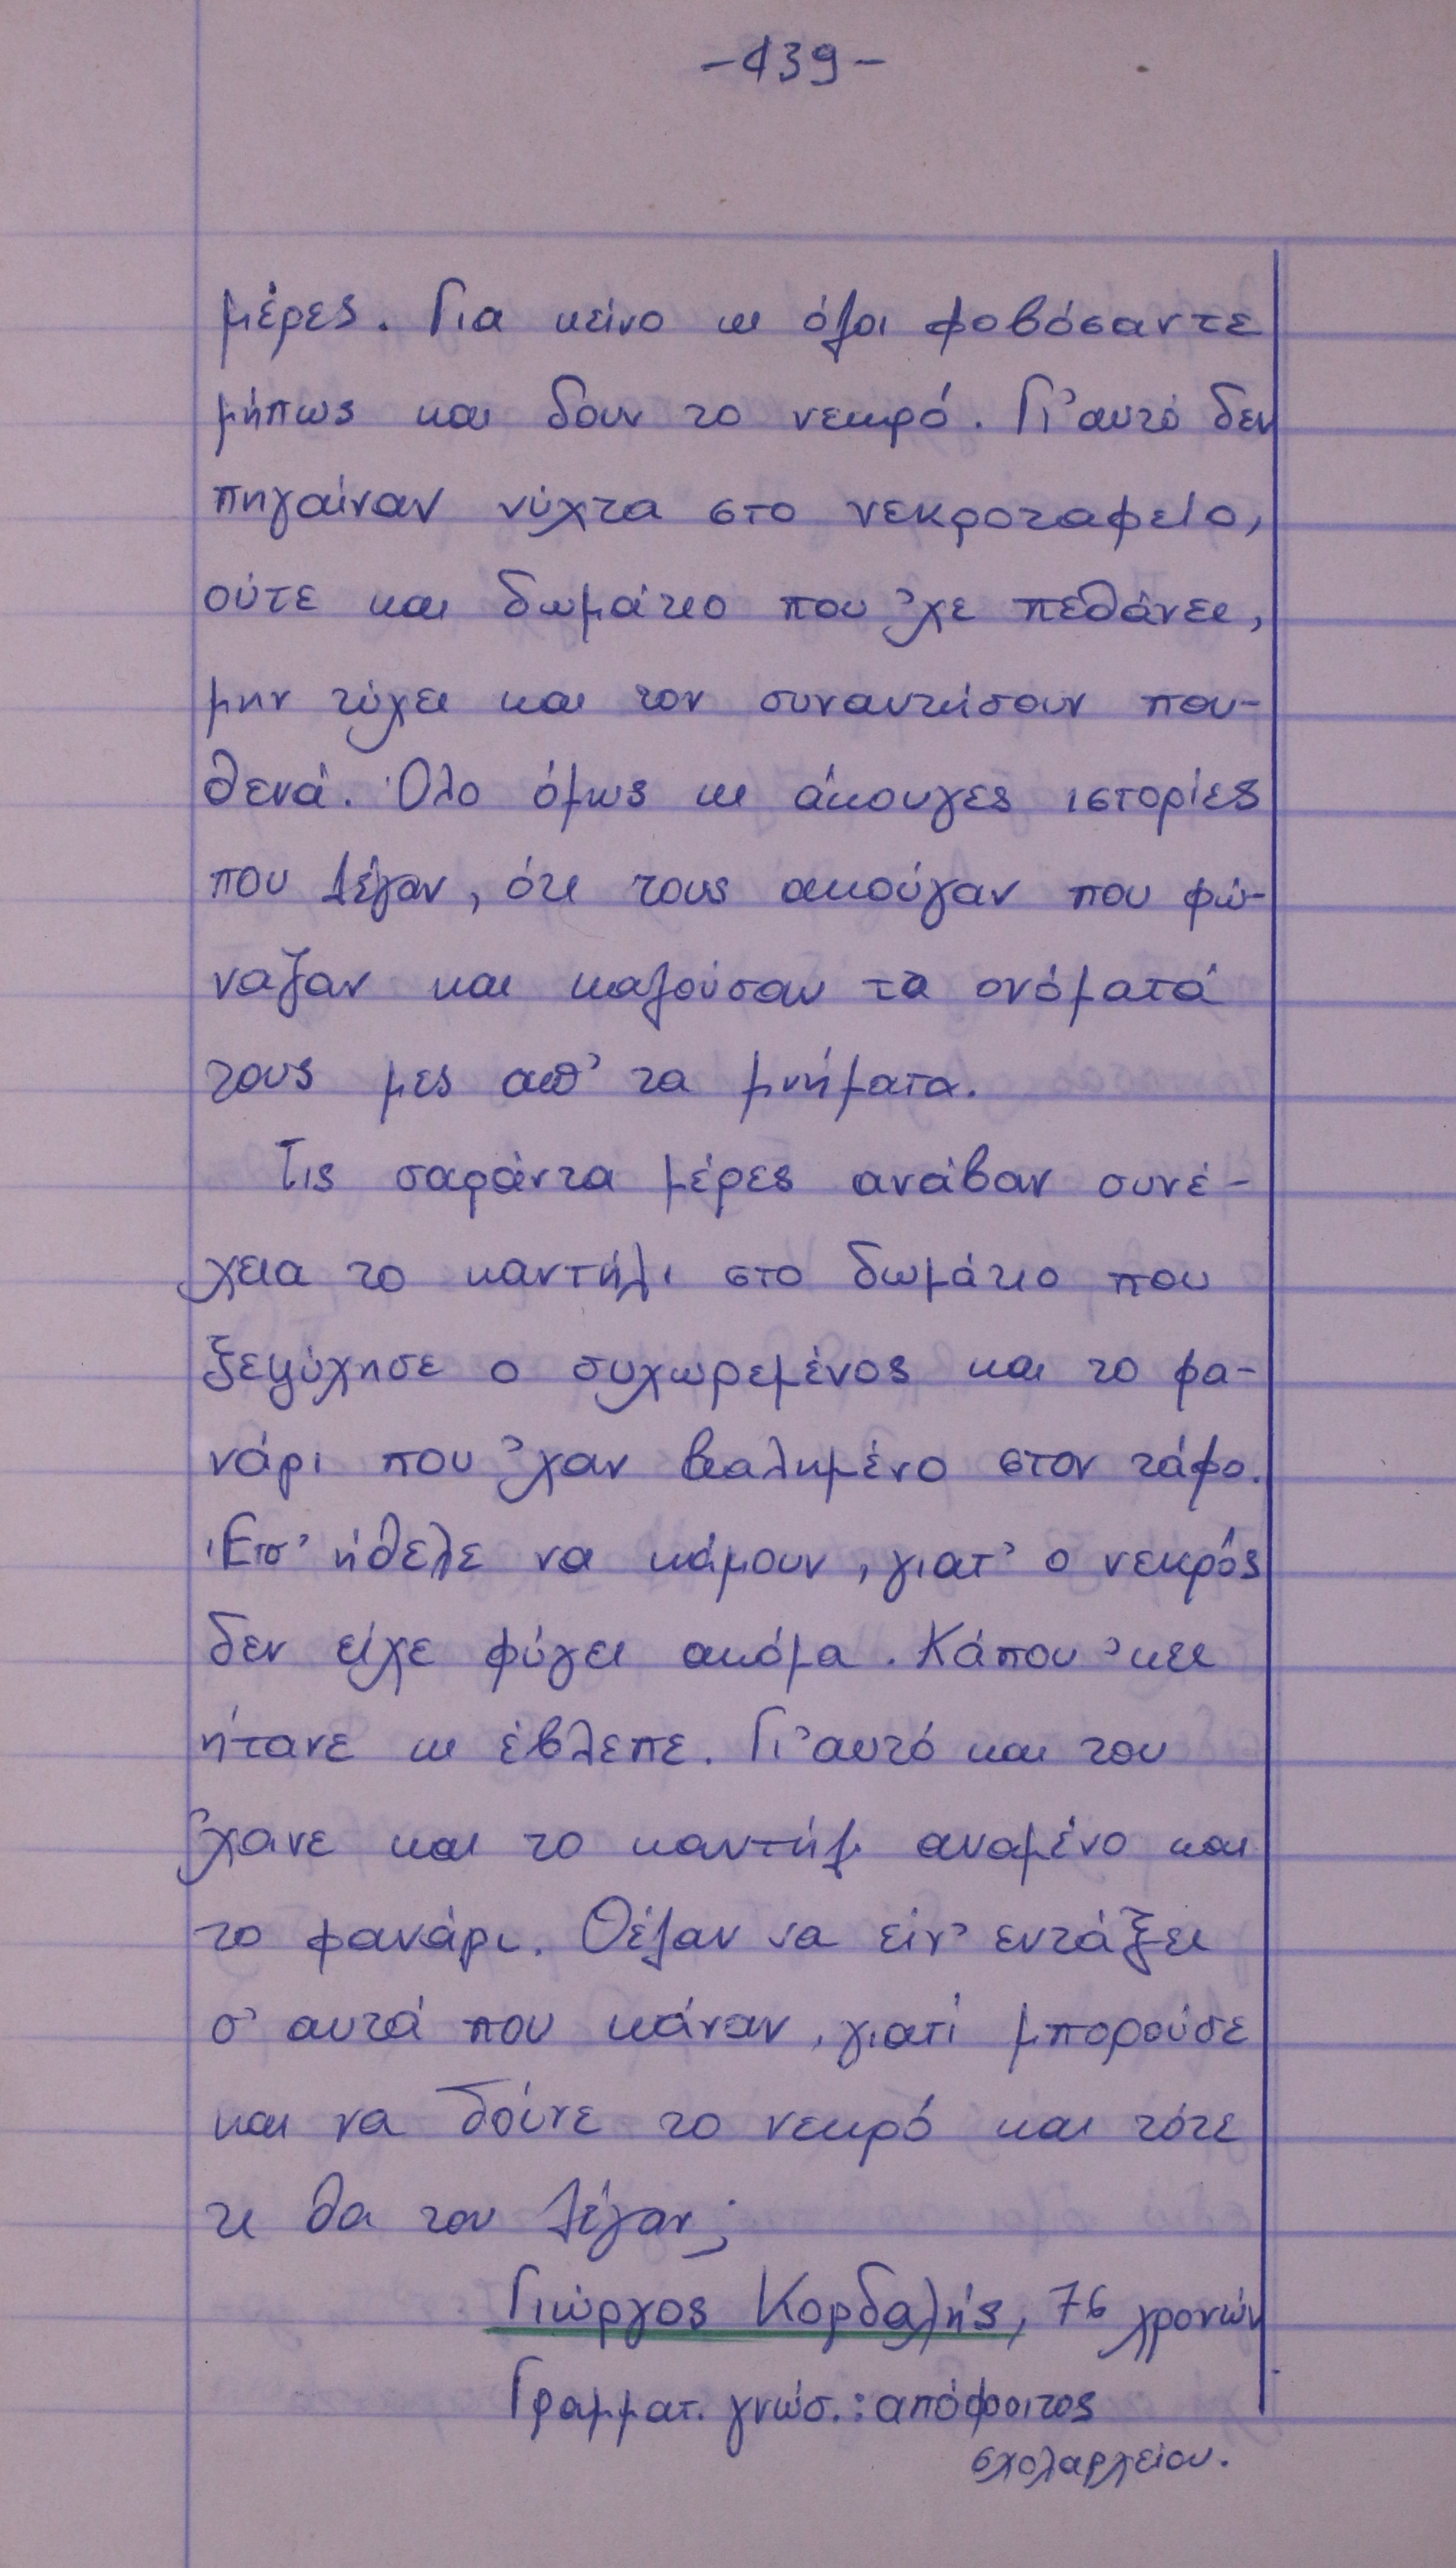 -139-
μέρες. Για κείνο κι όλοι φοβόσαντε
μήπως και δουν το νεκρό. Γι' αυτό δεν
πηγαίναν νύχτα στο νεκροταφείο,
ούτε και δωμάτιο που 'χε πεθάνει,
μην τύχει και τον συναντήσουν που-
θενά. Όλο όμως κι άκουγες ιστορίες
που λέγαν, ότι τους ακούγαν που φώ-
ναζαν και καλούσαν τα ονόματά
τους μες απ' τα μνήματα.
Τις σαράντα μέρες ανάβαν συνέ-
χεια το καντήλι στο δωμάτιο που
ξεψύχησε ο συχωρεμένος και το φα-
νάρι που 'χαν βαλημένο στον τάφο.
Έτσ' ήθελε να κάμουν, γιατ' ο νεκρός
δεν είχε φύγει ακόμα. Κάπου 'κει
ήτανε κι έβλεπε. Γι' αυτό και του
'χανε και το καντήλι αναμένο και
το φανάρι. Θέλαν να είν' εντάξει
σ' αυτά που κάναν, γιατί μπορούσε
και να δούνε το νεκρό και τότε
τι θα του λέγαν;
Γιώργος Κορδαλής, 76 χρονών
Γραμματ. γνώσ.: απόφοιτος
σχολαρχείου.